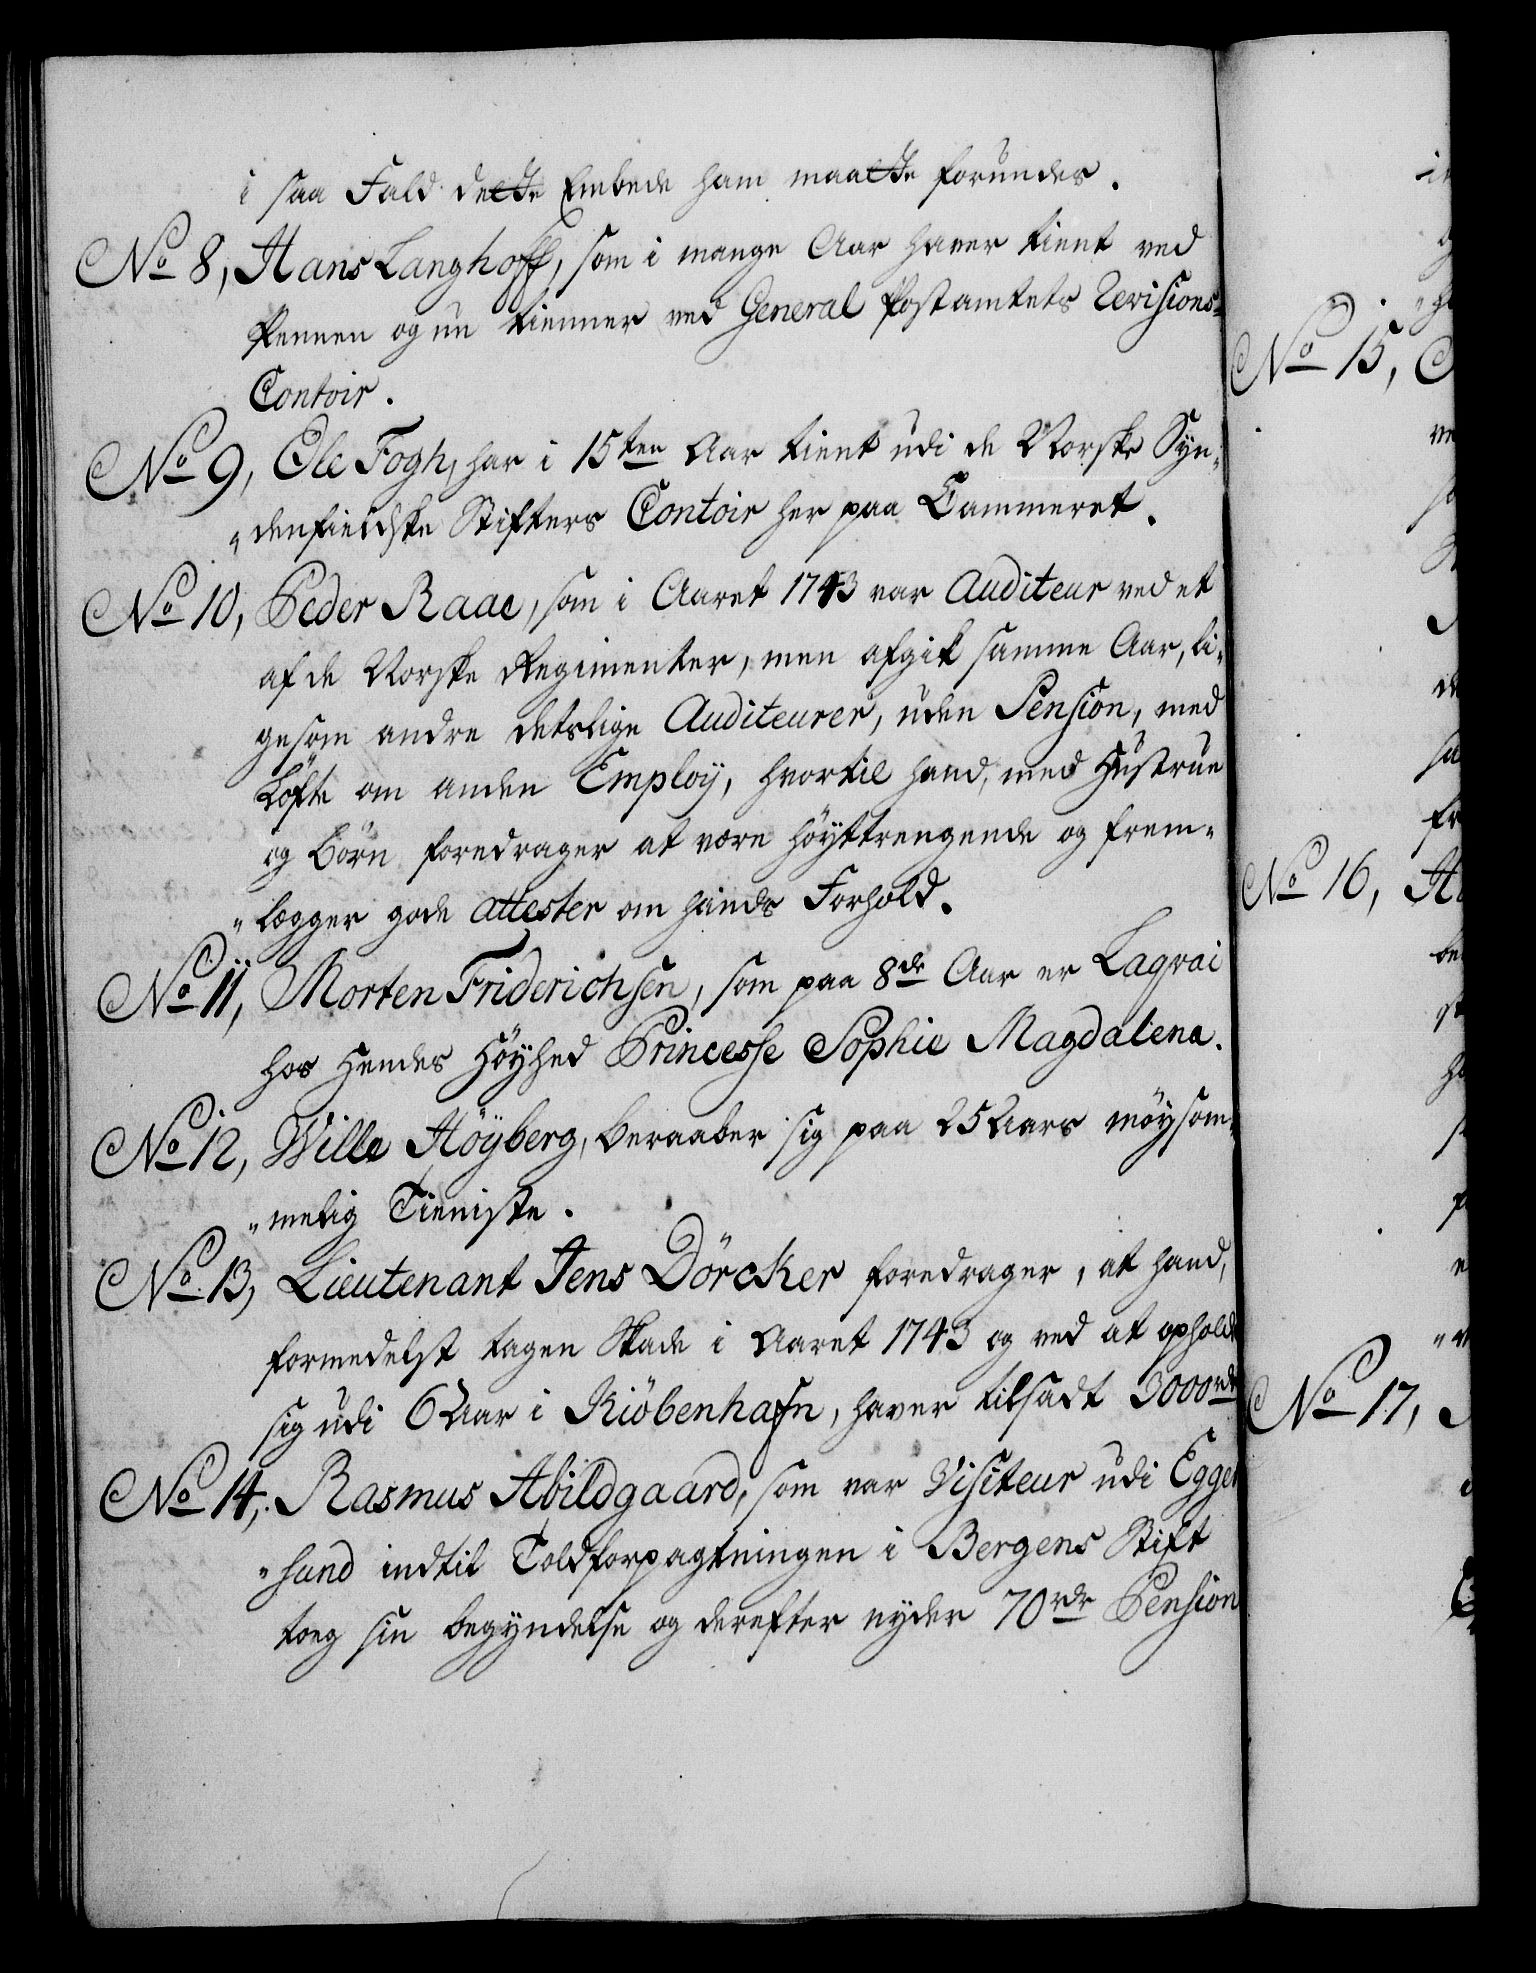 i saa Fald dette Embede ham maatte forundes.
No 8, Hans Langhoff, som i mange Aar haver tient ved
Pennen og nu tienner ved General Postamtets Revisions-
Contoir.
No 9, Ole Fogh, har i 15ten Aar tient udi de Norske Syn-
"denfieldske Stifters Contoir her paa Cammeret.
No 10, Peder Raae, som i Aaret 1743 var Auditeur ved et
af de Norske Regimenter, men afgik samme Aar, li-
gesom andre detslige Auditeurer, uden Pension, med
Løfte om anden Employ, hvortil hand, med Hustrue
og Börn foredrager at være höyttrengende og frem-
"lægger gode attester om hands Forhold.
No 11, Morten Friderichsen, som paa 8de Aar er Laqvai
hos Hendes Höyhed Princesse Sophie Magdalena.
No 12, Wille Höyberg, beraaber sig paa 25 Aars möysom-
"melig Tieniste.
No 13, Lieutenant Jens Dörcker foredrager, at hand,
formedelst tagen Skade i Aaret 1743 og ved at opholde
sig udi 6 Aar i Kiöbenhafn, haver tilsadt 3000rdr
No 14, Rasmus Abildgaard, som var Visiteur udi Egger
"sund indtil Toldforpagtningen i Bergens Stift
toeg sin begyndelse og derefter nyder 70rdr Pension
No 15,
No 16,
No 17,